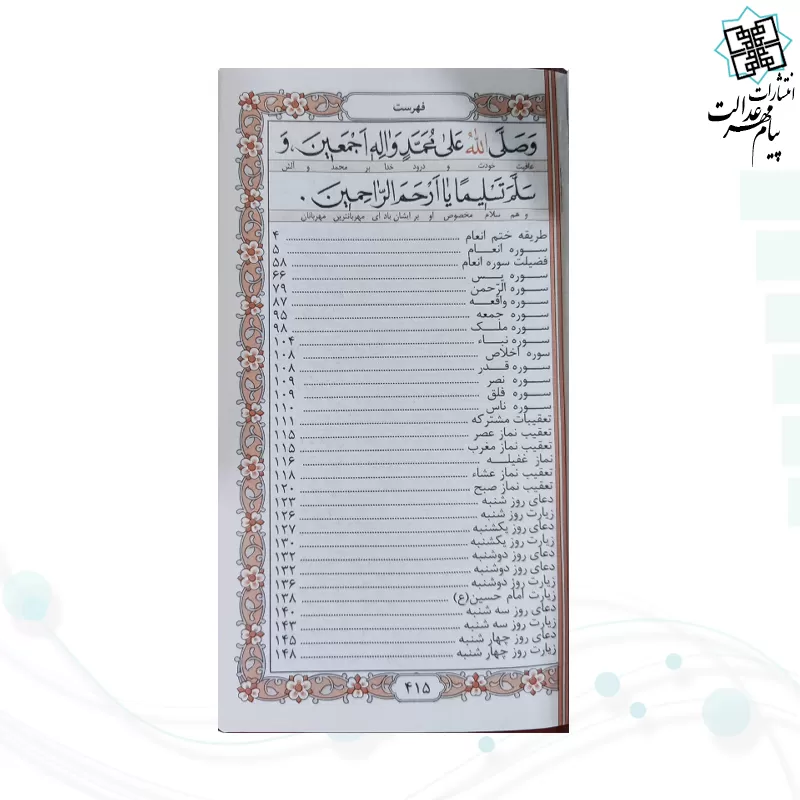 انتشارات
پیام مهر عدالت
فهرست
وَصَلَّى اللهُ عَلىٰ مُحَمَّدٍ وَالِهِ اَجْمَعينَ، وَ
عافیت خودت و درود خدا بر محمد و آلش
سَلَّمَ تَسْليمًا يا اَرْحَمَ الرّاحِمينَ .
و هم سلام مخصوص او بر ایشان باد ای مهربانترین مهربانان
طریقه ختم انعام ۴
سوره انعام ۵
فضیلت سوره انعام ۵۸
سوره یس ۶۶
سوره الرّحمن ۷۹
سوره واقعه ۸۷
سوره جمعه ۹۵
سوره ملک ۹۸
سوره نباء ۱۰۴
سوره اخلاص ۱۰۸
سوره قدر ۱۰۸
سوره نصر ۱۰۹
سوره فلق ۱۰۹
سوره ناس ۱۱۰
تعقیبات مشترکه ۱۱۱
تعقیب نماز عصر ۱۱۵
تعقیب نماز مغرب ۱۱۵
نماز غفیله ۱۱۶
تعقیب نماز عشاء ۱۱۸
تعقیب نماز صبح ۱۲۰
دعای روز شنبه ۱۲۳
زیارت روز شنبه ۱۲۶
دعای روز یکشنبه ۱۲۷
زیارت روز یکشنبه ۱۳۰
دعای روز دوشنبه ۱۳۲
دعای روز دوشنبه ۱۳۲
زیارت روز دوشنبه ۱۳۶
زیارت امام حسین(ع) ۱۳۸
دعای روز سه شنبه ۱۴۰
زیارت روز سه شنبه ۱۴۳
دعای روز چهار شنبه ۱۴۵
زیارت روز چهار شنبه ۱۴۸
۴۱۵